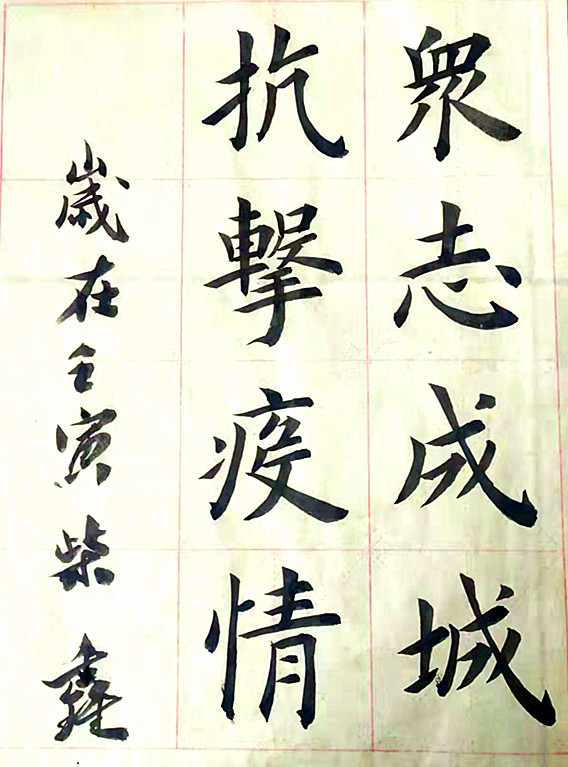 衆志成城
抗擊疫情
歲在壬寅柴